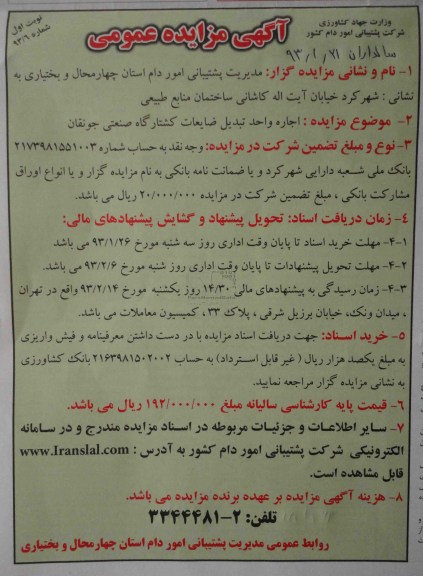 وزارت جهاد کشاورزی
شرکت پشتیبانی امور دام کشور
آگهی مزایده عمومی
نوبت اول
شماره ۹۳/۶
سالداران ۹۳/۱/۲۱
۱- نام و نشانی مزایده گزار: مدیریت پشتیبانی امور دام استان چهارمحال و بختیاری به
نشانی : شهرکرد خیابان آیت اله کاشانی ساختمان منابع طبیعی
۲- موضوع مزایده : اجاره واحد تبدیل ضایعات کشتارگاه صنعتی جونقان
۳- نوع و مبلغ تضمین شرکت در مزایده: وجه نقد به حساب شماره ۲۱۷۳۹۸۱۵۵۱۰۰۳
بانک ملی شعبه دارایی شهرکرد و یا ضمانت نامه بانکی به نام مزایده گزار و یا انواع اوراق
مشارکت بانکی ، مبلغ تضمین شرکت در مزایده ۲۰/۰۰۰/۰۰۰ ریال می باشد.
۴- زمان دریافت اسناد: تحویل پیشنهاد و گشایش پیشنهادهای مالی:
۴-۱- مهلت خرید اسناد تا پایان وقت اداری روز سه شنبه مورخ ۹۳/۱/۲۶ می باشد
۴-۲- مهلت تحویل پیشنهادات تا پایان وقت اداری روز شنبه مورخ ۹۳/۲/۶ می باشد.
۴-۳- زمان رسیدگی به پیشنهادهای مالی ۱۴/۳۰ روز یکشنبه مورخ ۹۳/۲/۱۴ واقع در تهران
، میدان ونک، خیابان برزیل شرقی ، پلاک ۳۳ ، کمیسیون معاملات می باشد.
۵- خرید اسناد: جهت دریافت اسناد مزایده با در دست داشتن معرفینامه و فیش واریزی
به مبلغ یکصد هزار ریال ( غیر قابل استرداد) به حساب ۲۱۶۳۹۸۱۵۰۲۰۰۲ بانک کشاورزی
به نشانی مزایده گزار مراجعه نمایید.
۶- قیمت پایه کارشناسی سالیانه مبلغ ۱۹۲/۰۰۰/۰۰۰ ریال می باشد.
۷- سایر اطلاعات و جزئیات مربوطه در اسناد مزایده مندرج و در سامانه
الکترونیکی شرکت پشتیبانی امور دام کشور به آدرس : www.Iranslal.com
قابل مشاهده است.
۸- هزینه آگهی مزایده بر عهده برنده مزایده می باشد.
تلفن: ۲-۳۳۴۴۴۸۱
روابط عمومی مدیریت پشتیبانی امور دام استان چهارمحال و بختیاری